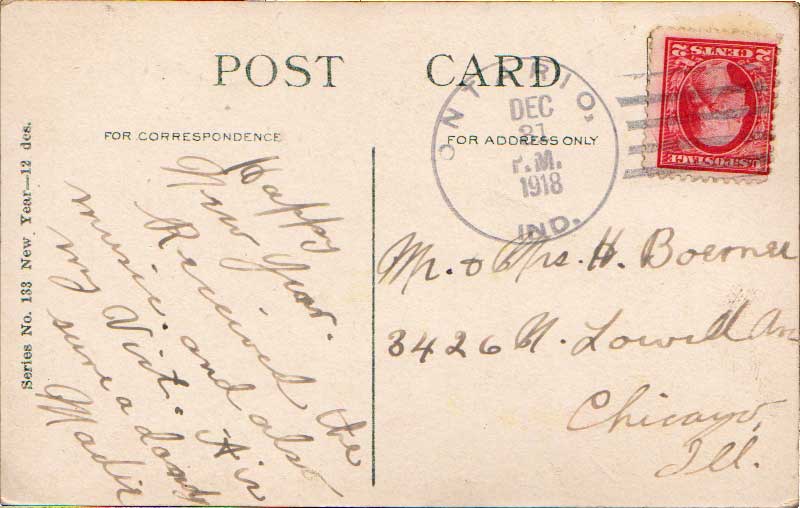 POST CARD
FOR CORRESPONDENCE
FOR ADDRESS ONLY
Series No. 133 New Year—12 des.
ONTARIO,
DEC
31
P.M.
1918
IND.
2 CENTS 2
U.S. POSTAGE
Happy
New Year.
Received the
music. and also
my Vict. It is
sure a dandy
Madie
Mr. & Mrs. H. Boerner
3426 N. Lowell Av
Chicago,
Ill.